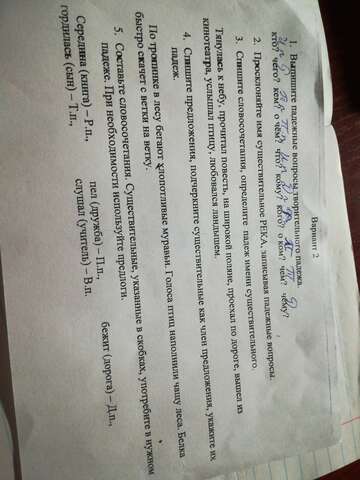 Вариант 2
1. Выпишите падежные вопросы творительного падежа.
кто? чего? кем? о чём? что? кому? кого? о ком? чем? чему?
2. Просклоняйте имя существительное РЕКА, записывая падежные вопросы.
3. Спишите словосочетания, определите падеж имени существительного.
Тянулась к небу, прочитал повесть, на широкой поляне, проехал по дороге, вышел из
кинотеатра, услышал птицу, любовался ландышем.
4. Спишите предложения, подчеркните существительные как член предложения, укажите их
падеж.
По тропинке в лесу бегают хлопотливые муравьи. Голоса птиц наполнили чащу леса. Белка
быстро скачет с ветки на ветку.
5. Составьте словосочетания. Существительные, указанные в скобках, употребите в нужном
падеже. При необходимости используйте предлоги.
Середина (книга) – Р.п., пел (дружба) – П.п., бежит (дорога) – Д.п.,
гордилась (сын) – Т.п., слушал (учитель) – В.п.